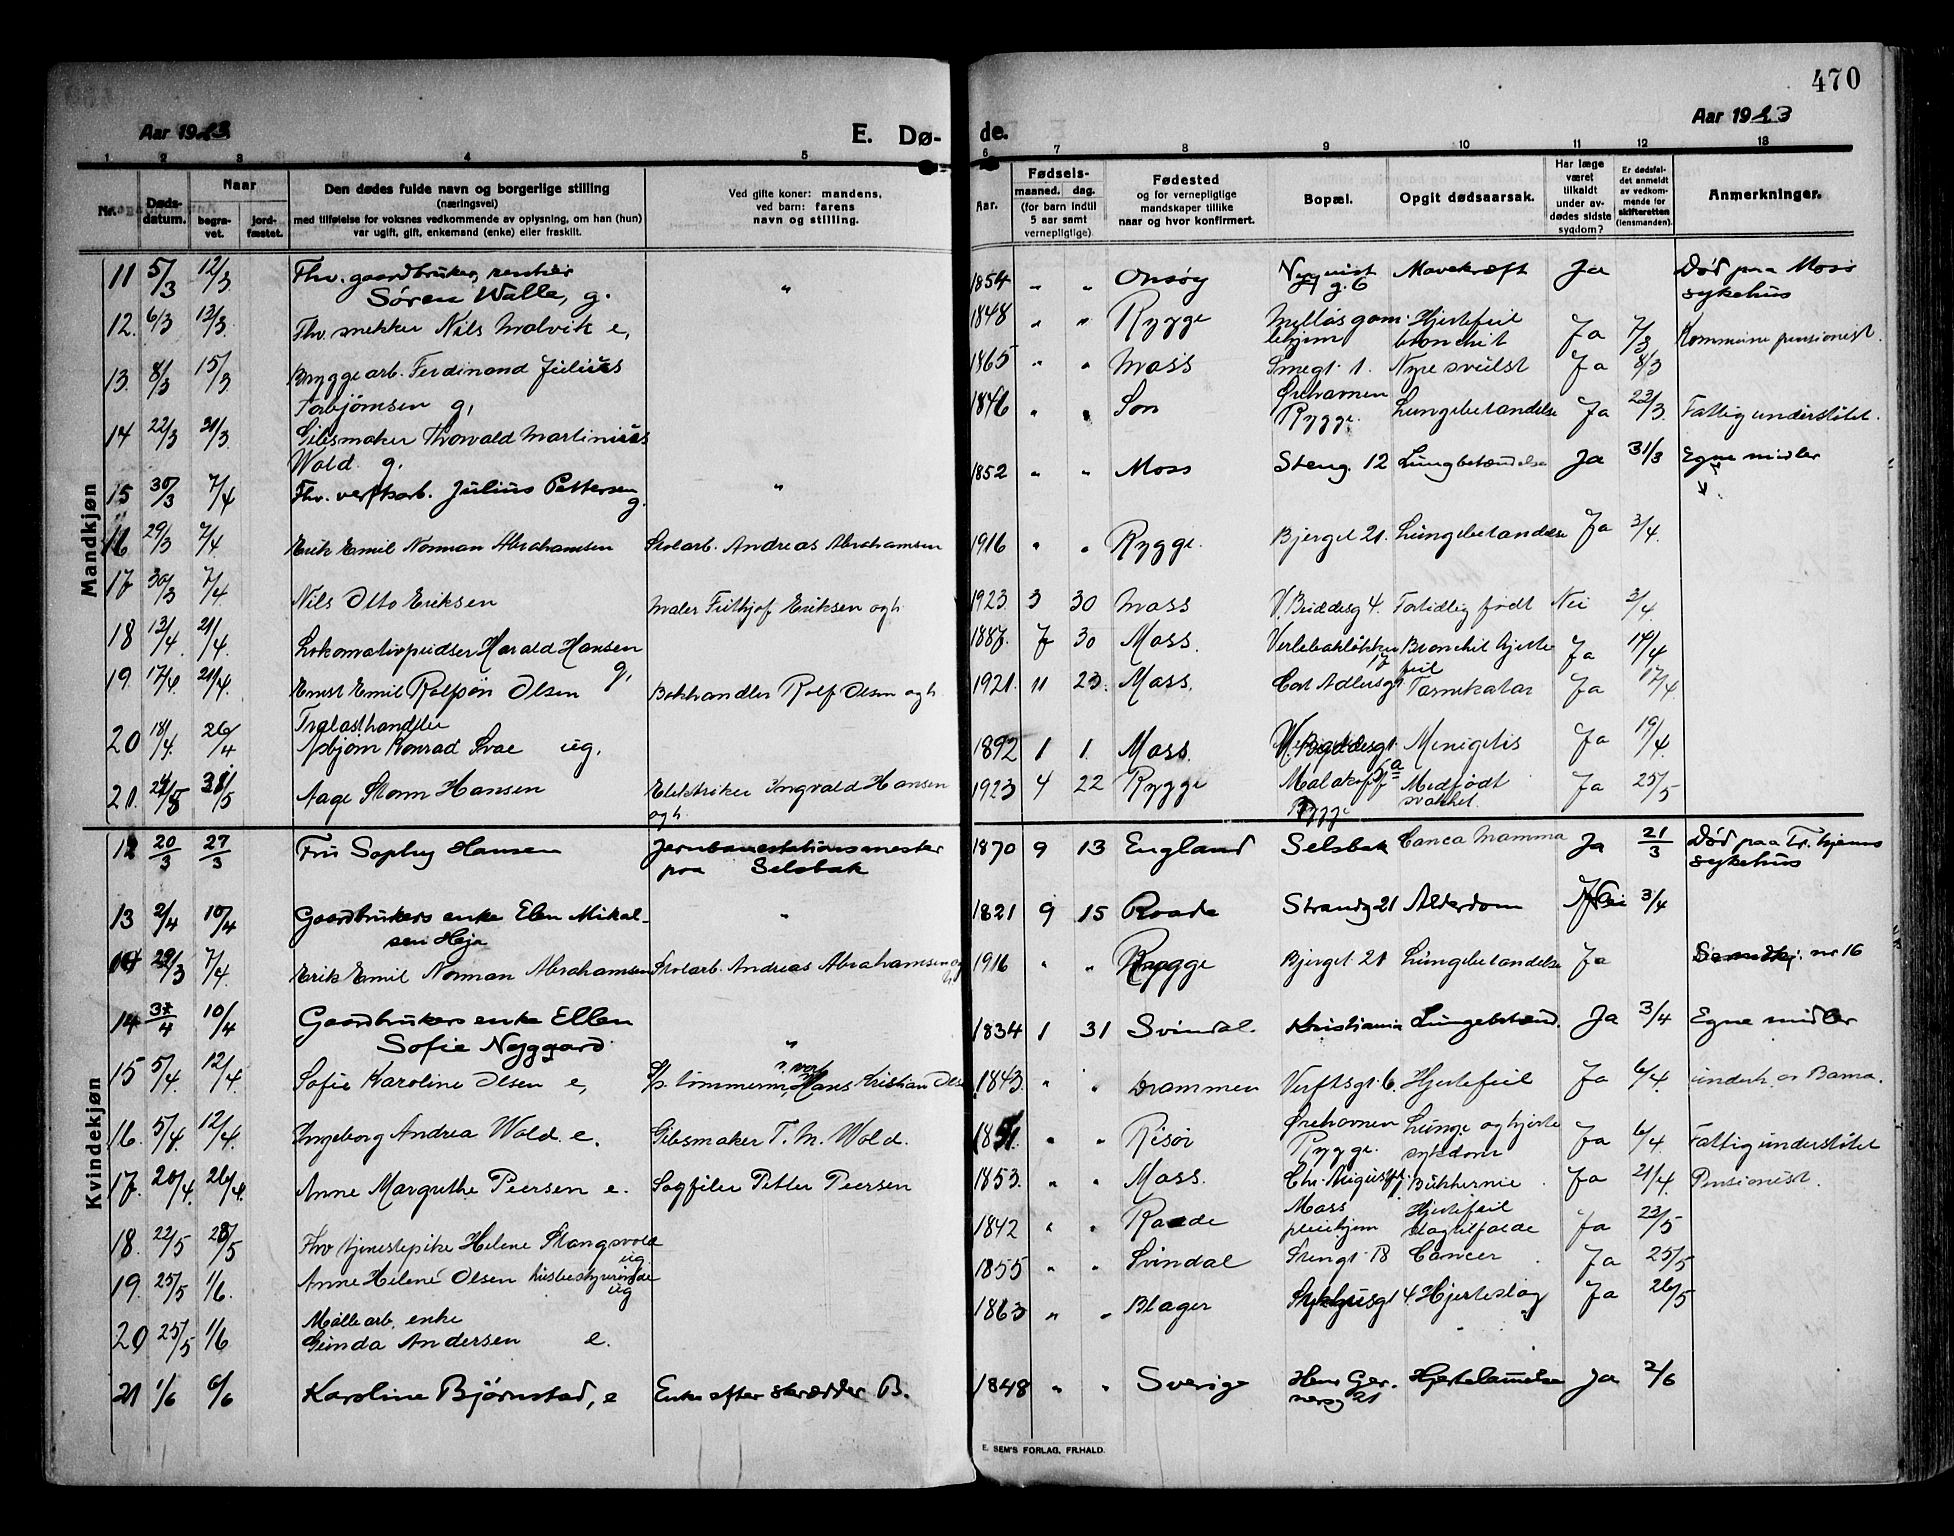 470
Aar 1923
E. Dø-
de.
Aar 1923
1 2 3 4 5 6 7 8 9 10 11 12 13
Nr.
Døds-
datum.
Naar
begra-
vet.
jord-
fæstet.
Den dødes fulde navn og borgerlige stilling
(næringsvei)
med tilføielse for voksnes vedkommende av oplysning, om han (hun)
var ugift, gift, enkemand (enke) eller fraskilt.
Ved gifte koner: mandens,
ved barn: farens
navn og stilling.
Aar.
Fødsels-
maaned. dag.
(for barn indtil
5 aar samt
vernepligtige).
Fødested
og for vernepligtige
mandskaper tillike
naar og hvor konfirmert.
Bopæl.
Opgit dødsaarsak.
Har læge
været
tilkaldt
under av-
dødes sidste
sygdom?
Er dødsfal-
det anmeldt
av vedkom-
mende for
skifteretten
(lensmanden).
Anmerkninger.
Mandkjøn
11 5/3 12/3 Fhv. gaardbruker, rentier
Søren Walle, g. " 1854 " " Onsøy g. 6 Mavekræft Ja Død paa Moss
sykehus
12. 6/3 13/3 Fhv. snekker Nils Malvik e, 1848 " " Rygge Hjertefeil
bronchit Ja 7/3 Kommune pensionist.
13. 8/3 15/3 Bryggearb. Ferdinand Julius
Torbjørnsen g, 1865 " " Moss Smegt. 1. Nyresvulst Ja 8/3
14 22/3 Gibsmaker Thorvald Martinius
Wold g, 1846 " " Son Ørehavnen
Rygge. Lungebetandelse Ja 22/3. Fattigunderstøtet.
15 30/3 7/4 Fhv. verftsarb. Julius Pettersen
g. " 1852 " " Moss Steng. 12 Lungbetændelse Ja 31/3 Egne midler
16 29/3 7/4 Erik Emil Norman Abrahamsen Skolarb. Andreas Abrahamsen 1916 " " Rygge. Bjerget 21. Lungebetandelse Ja 3/4.
17 30/3 7/4 Nils Otto Eriksen Maler Frithjof Eriksen og h. 1923 3 30 Moss V. Briddesg 4. Fortidlig født Nei 3/4
18 13/4. 21/4. Lokomotivpudser Harald Hansen
g, 1887. 7 30 Moss. Verlebakløkken
17 Bronchit hjerte
feil Ja 14/4
19. 17/4. 21/4. Ernst Emil Rolfsøn Olsen Bokhandler Rolf Olsen og h. 1921. 11 23. Moss. Carl Adlersgt Tarmkatar Ja 17/4
20 18/4. 26/4 Trælasthandler
Asbjørn Konrad Svae ug. 1892 1 1. Moss. Menigetis Ja 19/4
21. Aage Storm Hansen Elektriker Ingvald Hansen
og h. 1923 4 22 Rygge Malakoff
Rygge Medfødt
svakhet. Ja 25/5
Kvindekjøn
12 20/3 27/3 Fru Sophy Hansen Jernbanestationsmester
paa Selsbak 1870 9 13 England Selsbak Canca Mamma Ja 21/3 Død paa Fr.hjems
sykehus
13 2/4 10/4 Gaardbrukers enke Elen Mikal-
sen Heja " 1821 9 15 Raade Strandg 21 Alderdom Nei 3/4
14 29/3 7/4 Erik Emil Norman Abrahamsen Skolarb. Andreas Abrahamsen og
h. 1916 " " Rygge Bjerget 21 Lungebetandelse Ja Se mandkj. nr 16
14 10/4 Gaardbrukers enke Ellen
Sofie Nyggard " 1834 1 31 Svindal. Kristiania Lungebetænd. Ja 3/4 Egne midler
15 5/4. 12/4. Sofie Karoline Olsen e, tømmerm, Hans Kristian Olsen 1843. " " Drammen Verftsgt. 6. Hjertefeil Ja 6/4.
16. 5/4. 12/4. Ingeborg Andrea Wold e. Gibsmaker T. M. Wold. " " Risør Ørehavnen
Rygge. Lunge og hjerte
sykdom Ja 6/4. Fattigunderstøtet
17. 20/4. 26/4. Anne Margrethe Peersen e. Sagfiler Petter Peersen 1853. " " Moss. Chr. Augustgt. Bukhernie Ja 21/4. Pensionist.
18. 22/5 28/5 Fhv tjenestepike Helene Stangsvold
ug 1842 " " Raade Moss
pleiehjem Hjertefeil
slagtilfælde Ja 23/5
19. 25/5 1/6. Anne Helene Olsen husbestyrerinde
ug 1855 " " Svindal Cancer Ja 25/5
20 25/5 1/6 Møllearb. enke
Gunda Andersen e. 1863 " " Blager Sykhusgt 4. Hjerteslag Ja 26/5
21 1/6 6/6 Karoline Bjørnstad, e Enke efter skrædder B. 1848 " " Sverige Hen. Ger-
nersg 21 Hjertelamelse Ja 2/6
E. SEM'S FORLAG, FR.HALD.